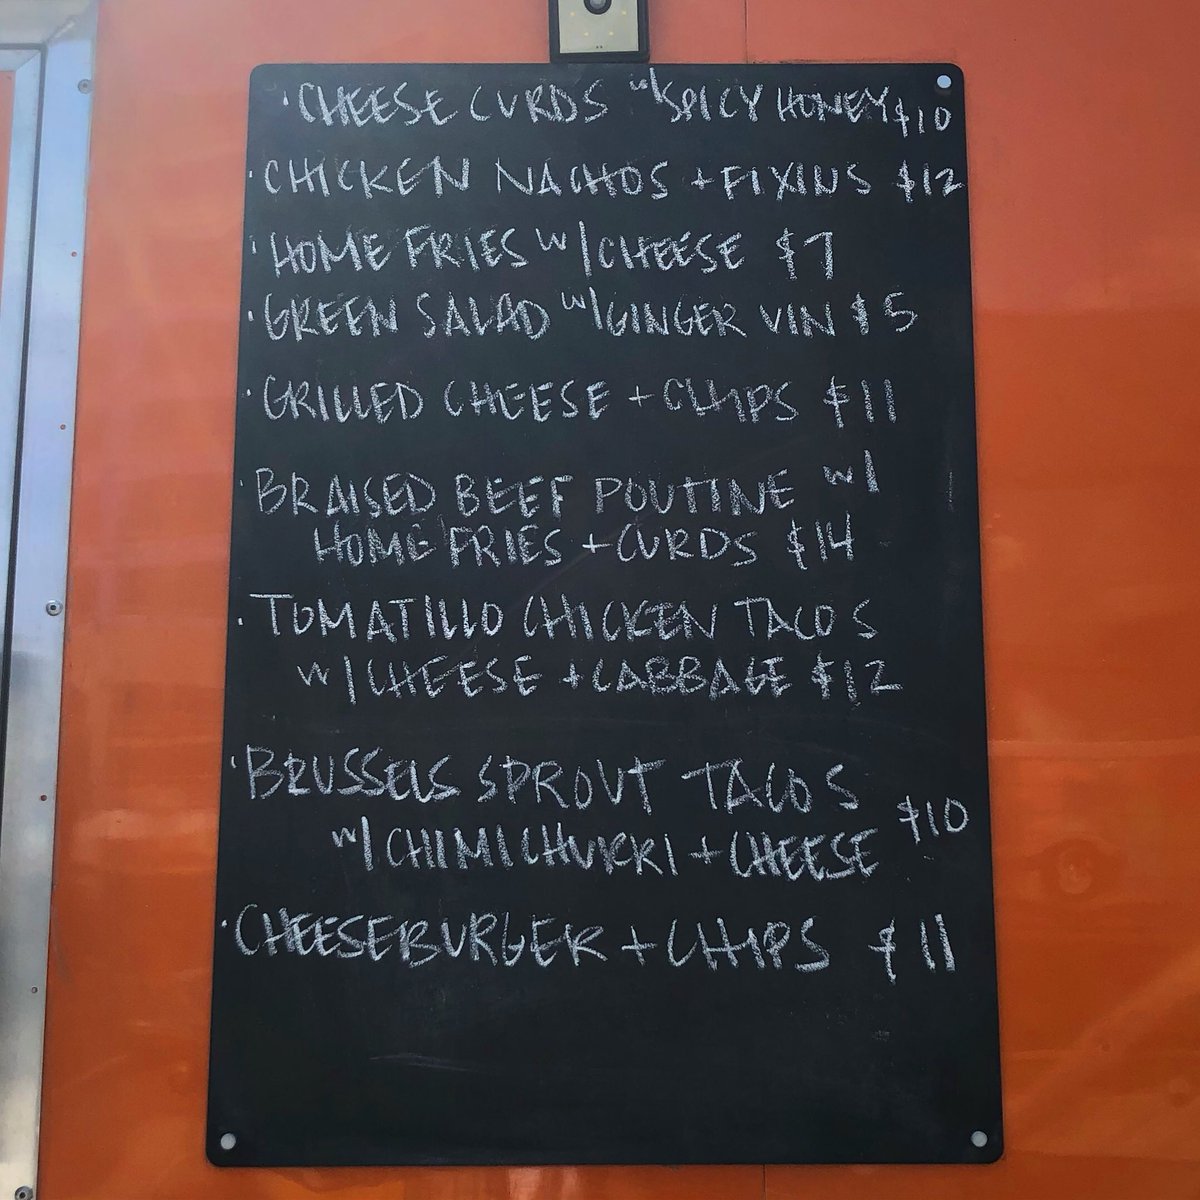 · CHEESE CURDS w/ SPICY HONEY $10
· CHICKEN NACHOS + FIXINS $12
· HOME FRIES w/ CHEESE $7
· GREEN SALAD w/ GINGER VIN $5
· GRILLED CHEESE + CHIPS $11
· BRAISED BEEF POUTINE w/
HOME FRIES + CURDS $14
· TOMATILLO CHICKEN TACOS
w/ CHEESE + CABBAGE $12
· BRUSSELS SPROUT TACOS
w/ CHIMICHURRI + CHEESE $10
· CHEESEBURGER + CHIPS $11